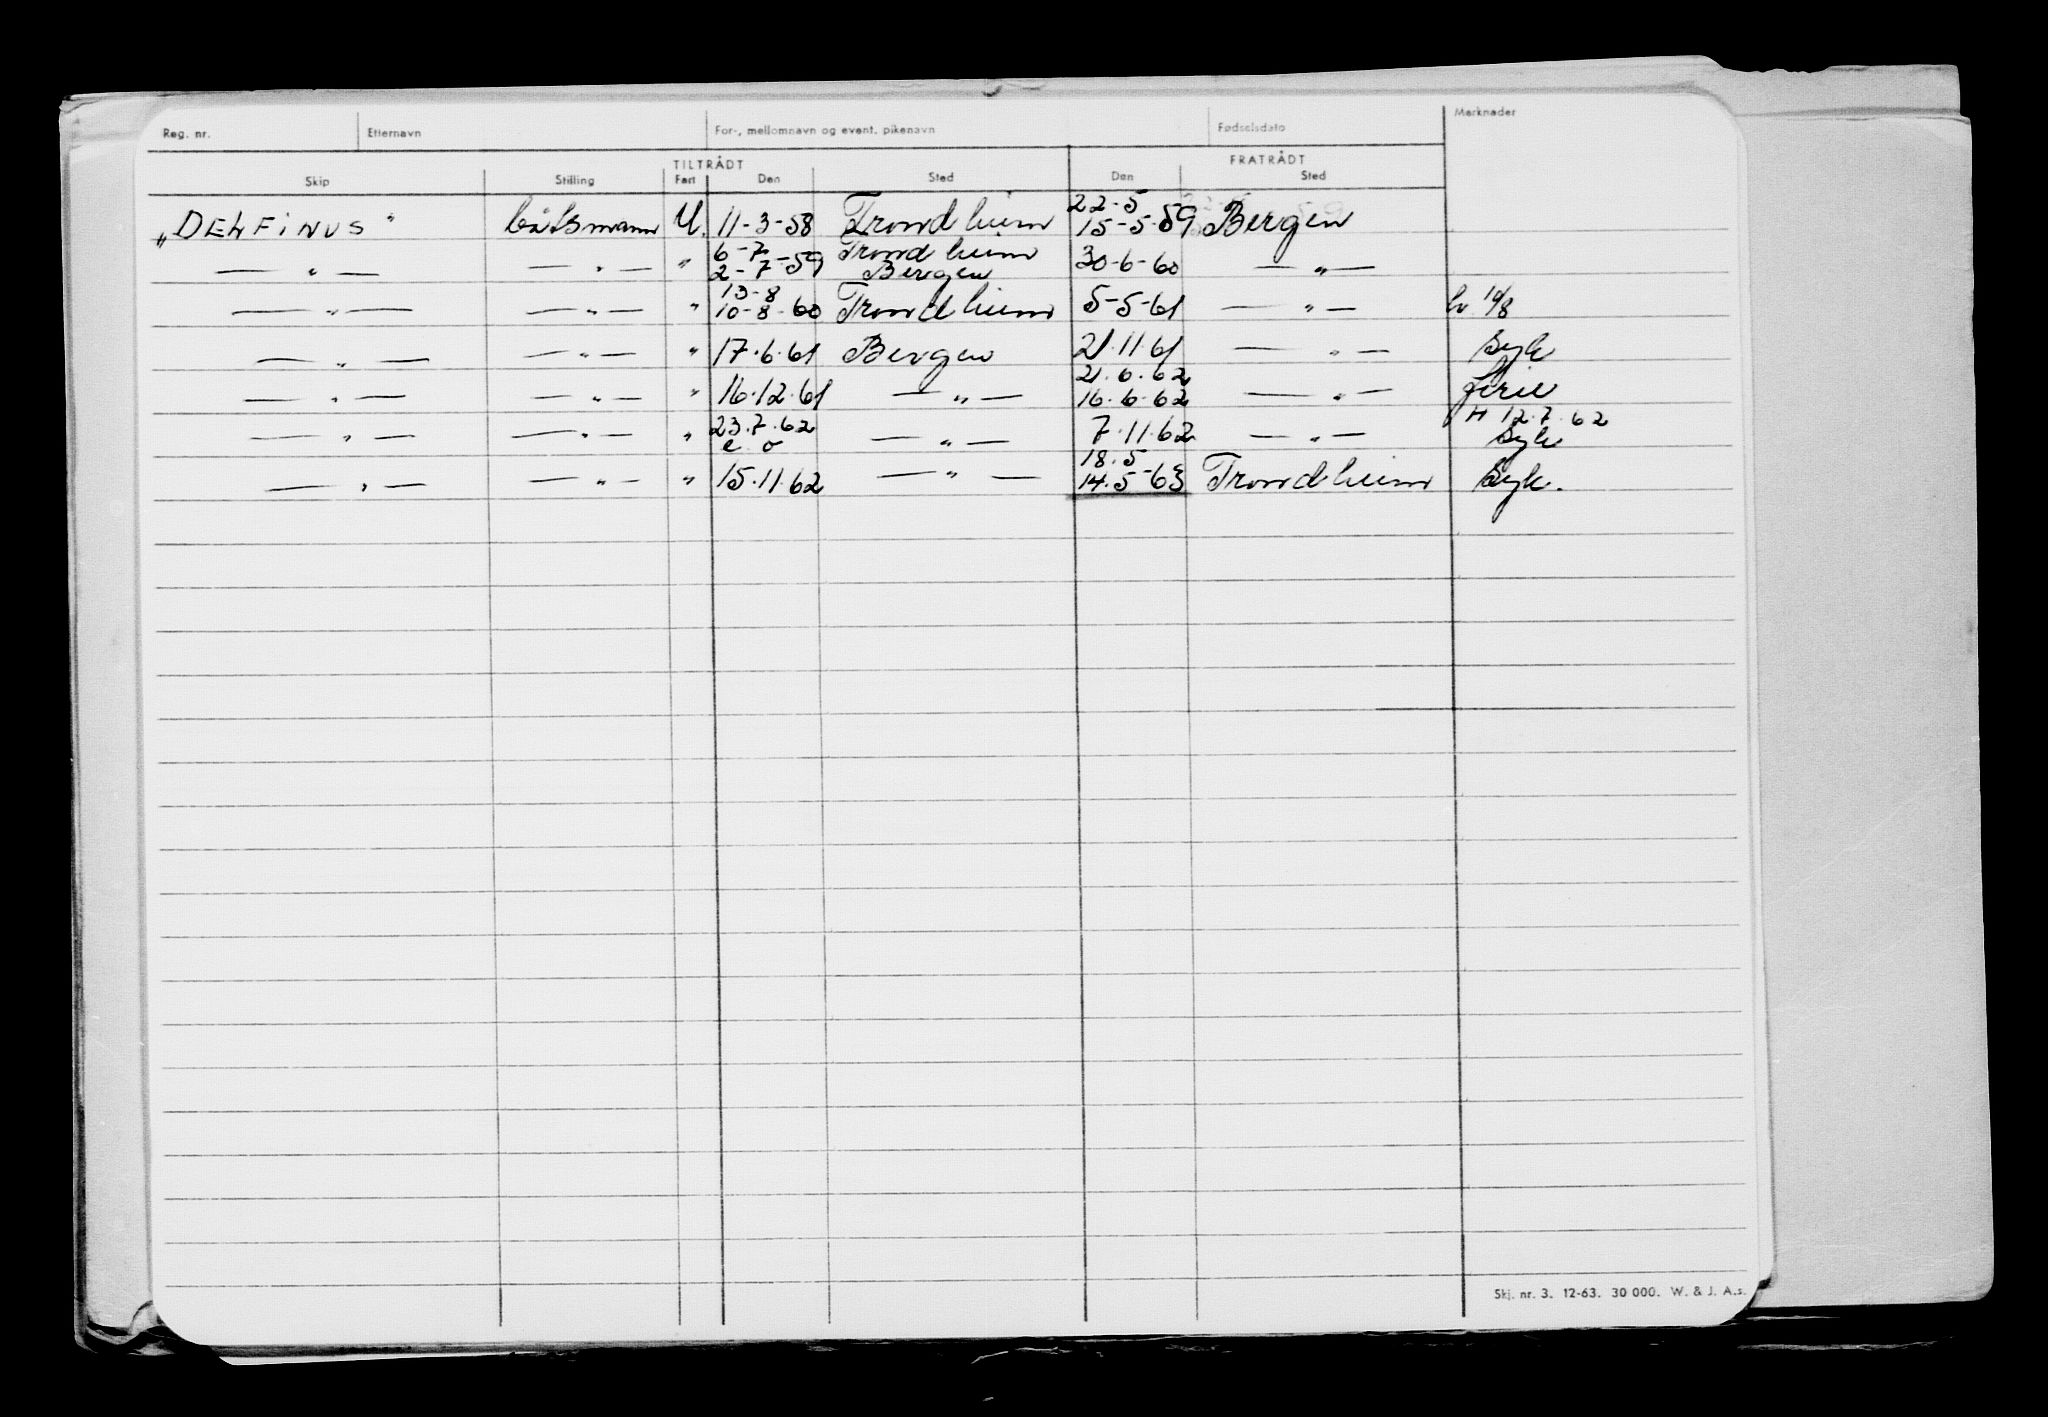 Reg. nr. Etternavn For-, mellomnavn og event. pikenavn Fødselsdato Merknader
TILTRÅDT FRATRÅDT
Skip Stilling Fart Den Sted Den Sted
22-5
„DELFINUS" båtsmann U. 11-3-58 Trondheim 15-5-59 Bergen
6-7 Trondheim
—"— —"— " 2-7-59 Bergen 30-6-60 —"—
13-8
—"— —"— " 10-8-60 Trondheim 5-5-61 —"— 10/8
—"— —"— " 17.6.61 Bergen 21.11.61 —"— Syk
21.6.62
—"— —"— " 16.12.61 —"— 16.6.62 —"— ferie
23.7.62 H 12.7.62
—"— —"— " e.o —"— 7.11.62 —"— Syk
18.5
—"— —"— " 15.11.62 —"— 14.5-63 Trondheim Syk.
Skj. nr. 3. 12-63. 30 000. W. & J. A.s.